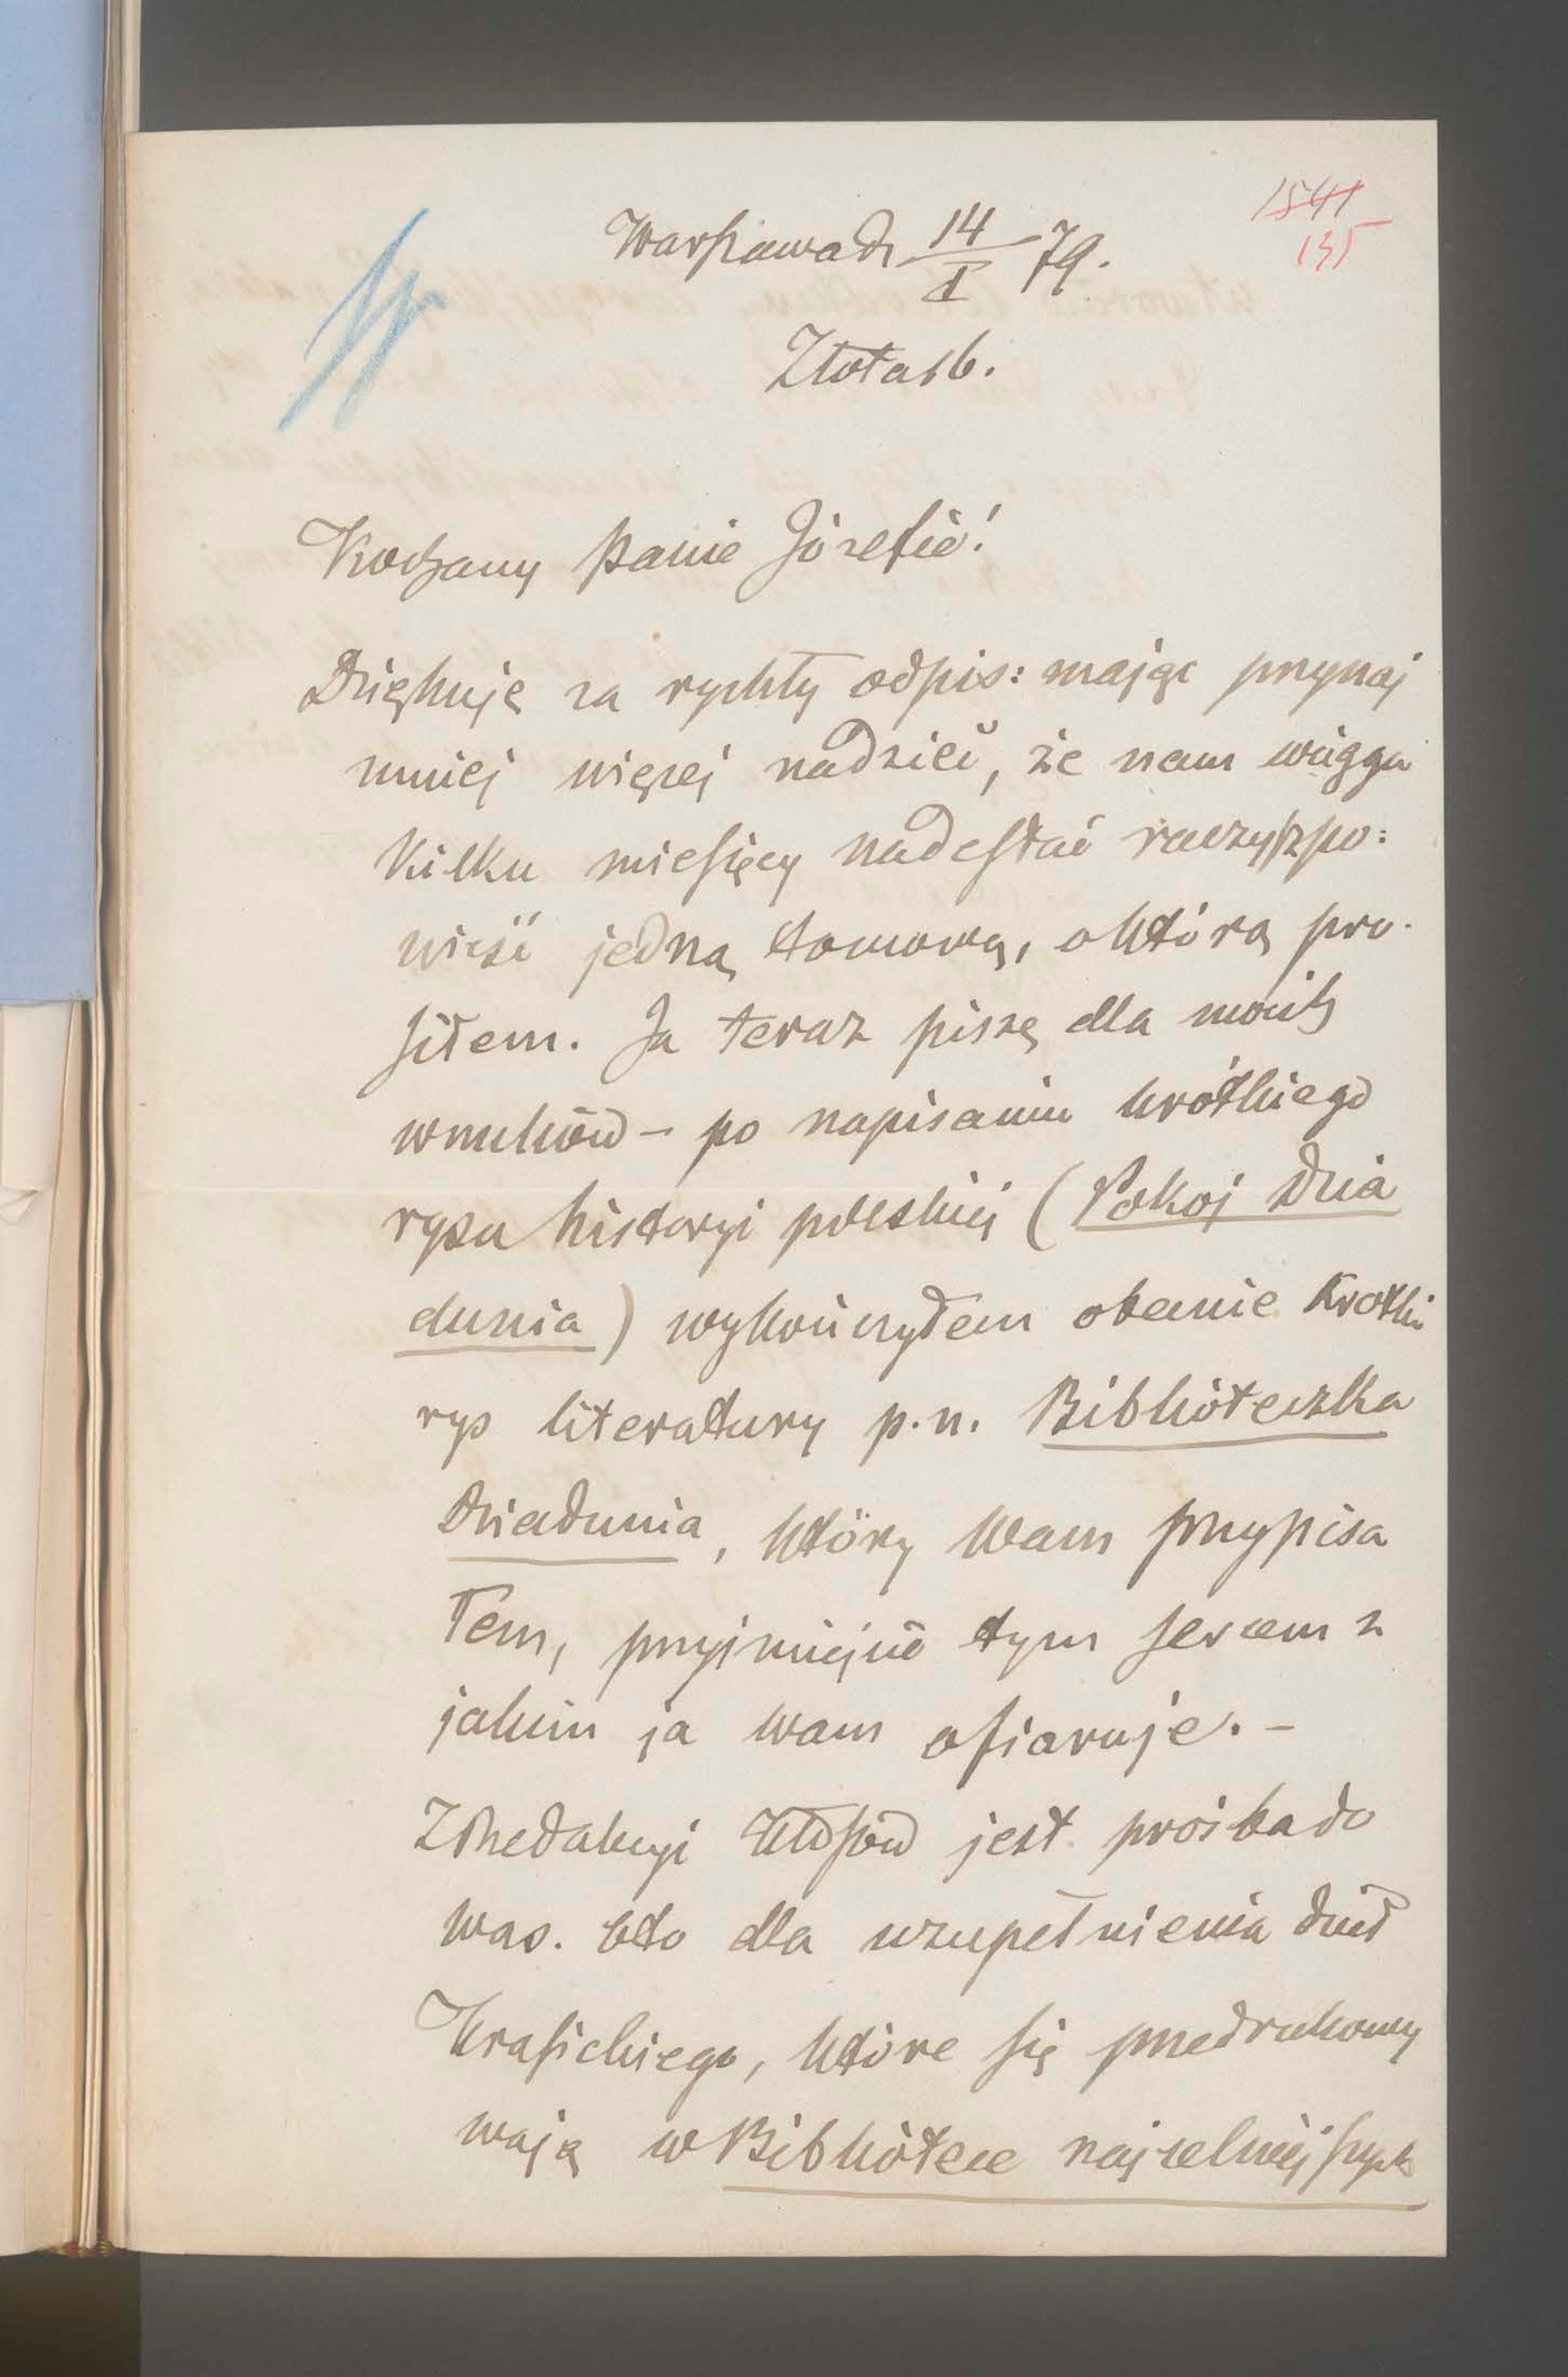 1541
135
Warszawa d. 14/I 79.
Złota 16.
Kochany Panie Józefie!
Dziękuję za rychły odpis: mając przynaj
mniej więcej nadzieć, że nam w ciągu
kilku miesięcy nadesłać raczysz po:
wieść jedną tomową, o którą pro-
siłem. Ja teraz piszę dla moich
wnuków – po napisaniu krótkiego
rysu historyi polskiéj (Pokoj Dzia
dunia) wykończyłem obecnie krotki
rys literatury p.n. Biblioteczka
Dziadunia, który Wam przypisa
łem, przyjmijcie tym sercem z
jakim ja Wam ofiaruje. –
Z Redakcyi Kłosów jest prośba do
Was. Oto dla uzupełnienia dzieł
Krasickiego, które się przedrukowy
wają w Bibliotece najcelniejszych